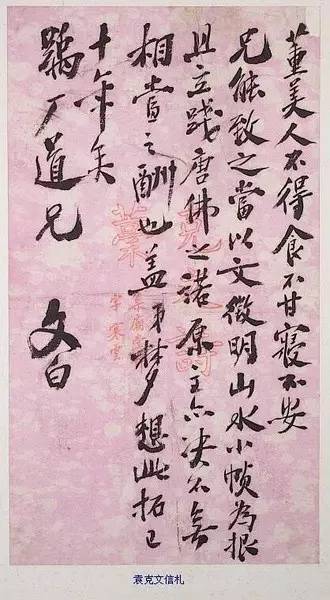 董美人不得食不甘寢不安
兄能致之當以文徵明山水小幀為報
且立踐唐佛之諾原主亦決不無
相當之酬也蓋弟夢想此拓已
十年矣
厂道兄
文白
袁克文信札